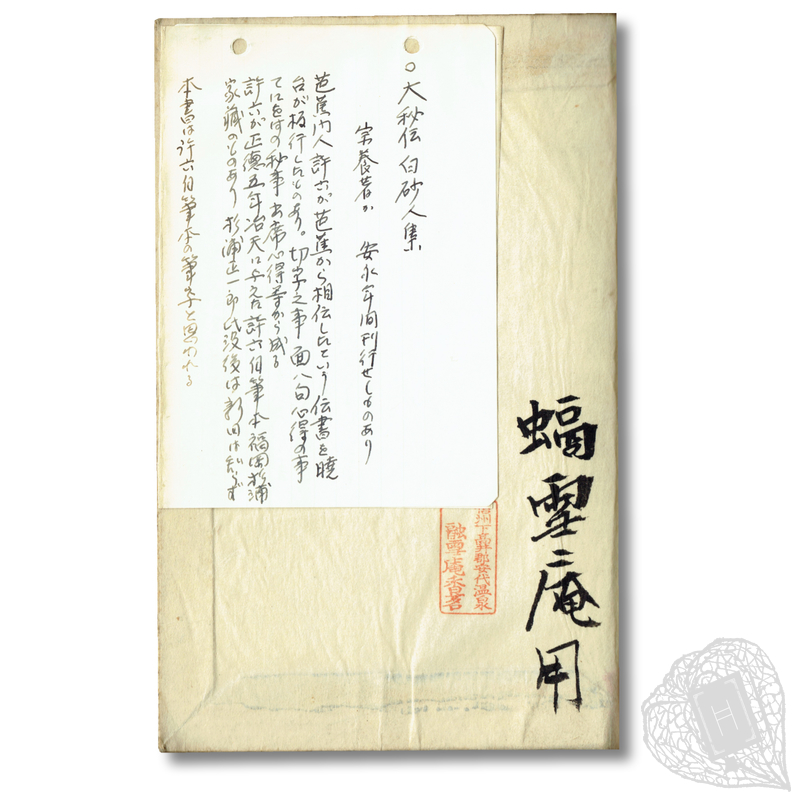 ○大秘伝白砂人集
宗養著か 安永年間刊行せしものあり
芭蕉門人許六が芭蕉から相伝したという伝書を暁
台が板行したものあり。切字之事 面八句心得の事
てにをはの秘事 出席心得等から成る
許六が正徳五年冶天に与えた許六自筆本福岡杉浦
家蔵のものあり 杉浦正一郎氏没後は新田は知らず
本書は許六自筆本の筆写と思われる
蝠雪庵用
信州下高井郡安代温泉
融雪庵杏茗